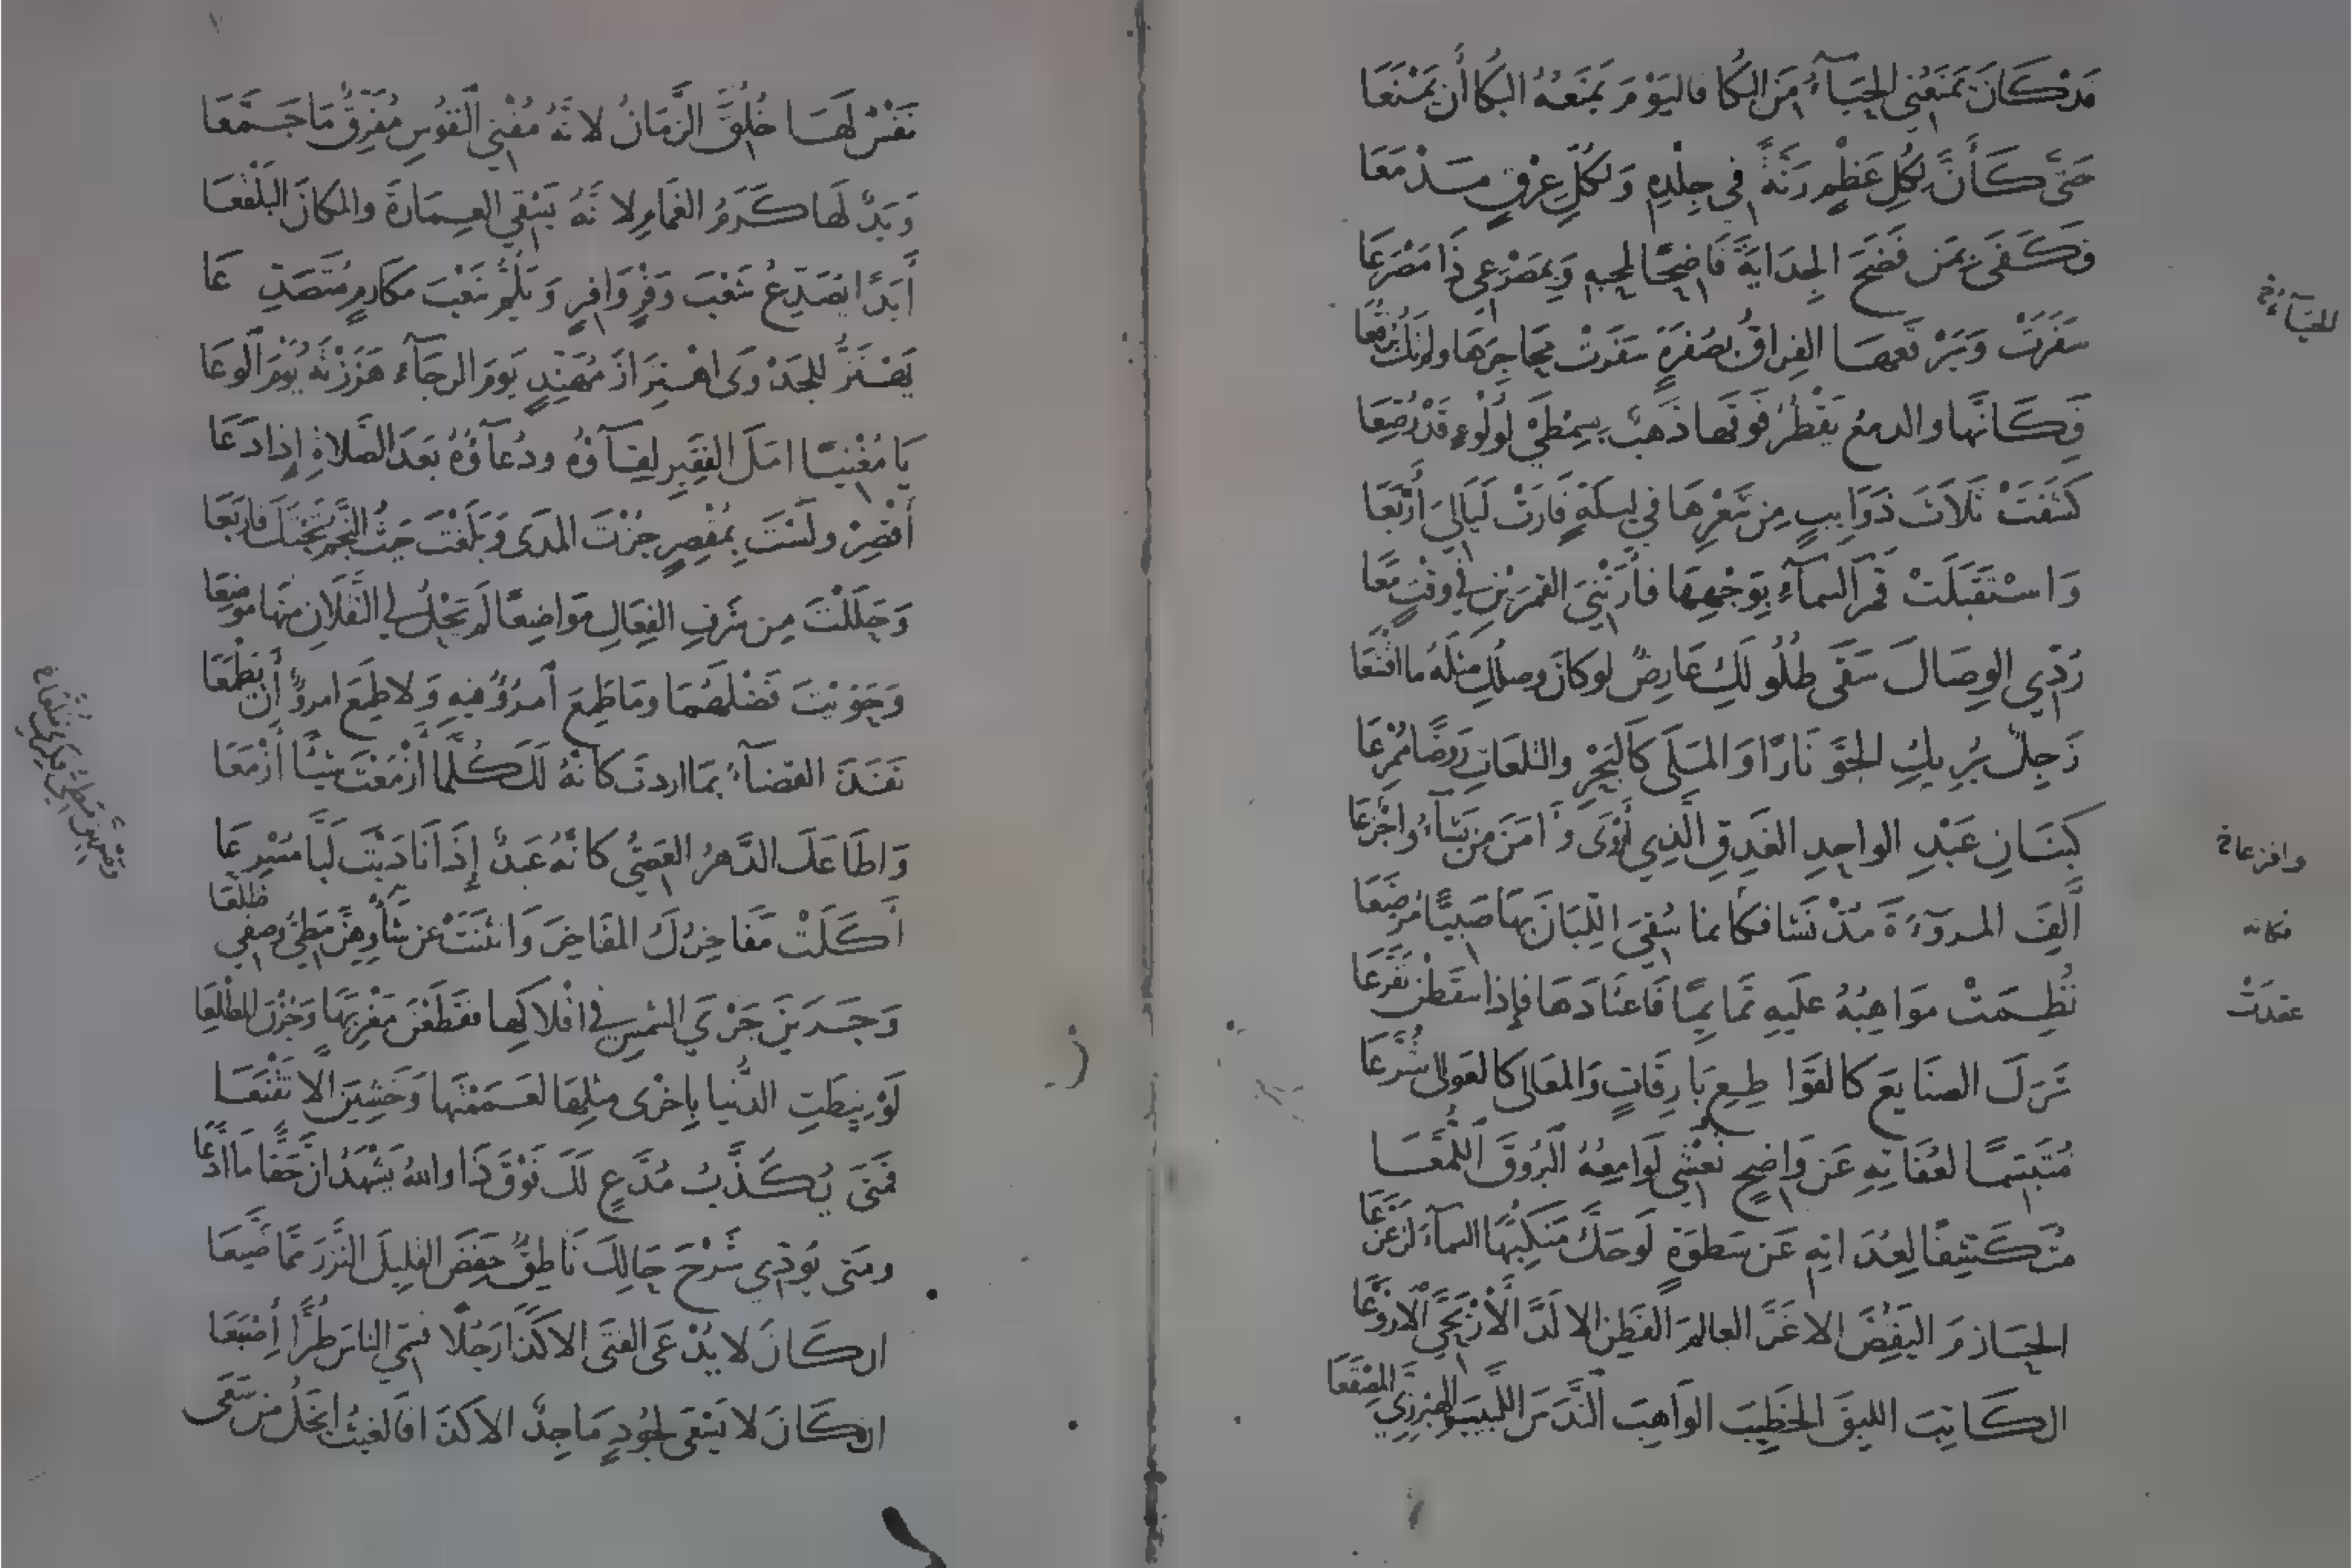 قَدْ كَانَ يَمْنَعُنِي الحَيَآءُ مِنَ البُكَا فاليَوْمَ يَمْنَعُهُ البُكَا أَن يَمْنَعَا
حَتَّى كَأَنَّ لِكُلِّ عَظْمٍ رَنَّةً فِي جِلْدِهِ وَلِكُلِّ عِرْقٍ مَدْمَعَا
وَكَفَى بِمَن فَضَحَ الجِدَايَةَ فَاضِحًا لمحبهِ وَبِمَصْرَعِي ذَا مَصْرَعَا
سَفَرَتْ وَبَرْقَعَهَا الفِرَاقُ بِصُفْرَةٍ سَتَرَتْ مَحَاجِرَهَا ولم تَكُ بُرْقُعَا
فَكَأَنَّهَا والدمعُ يَقْطُرُ فَوْقَهَا ذَهَبٌ بِسِمْطَيْ لُؤْلُؤٍ قَدْ رُصِّعَا
كَشَفَتْ ثَلَاثَ ذَوَايِبٍ مِن شَعْرِهَا فِي لَيلَةٍ فَأَرَتْ لَيَالِيَ أَرْبَعَا
وَاسْتَقْبَلَتْ قَمَرَ السمآءِ بِوَجْهِهَا فَأَرَتْنِيَ القمرَيْنِ فِي وقْتٍ مَعَا
رُدِّي الوِصَالَ سَقَى طُلُولَكِ عَارِضٌ لو كانَ وصلُكِ مِثلَهُ ما اقْشَعَا
زَجِلٌ يُرِيكِ الجَوَّ نَارًا وَالمَلَى كَالبَحْرِ والتلعَاتِ رَوضًا مُمْرِعَا
كبَنَانِ عَبْدِ الواحِدِ الغَدِقِ الَّذِي أَرْوَى وَأَمَنَ مَن يَشَآءُ وأَجْزَعَا
أَلِفَ المروَءَةَ مُذْ نَشَا فكأنما سُقِيَ اللِّبَانَ بِهَا صَبِيًّا مُرضَعَا
نُظِمَتْ مَوَاهِبُهُ عَلَيهِ تَمَايِمًا فَاعْتَادَهَا فإِذَا سقَطْنَ تَفَزَّعَا
تَرَكَ الصنَايعَ كالقَوَاطِعِ بَارِقَاتٍ وَالمعَالى كالعَوالى شُرَّعَا
مُتَبَسِّمًا لعُفَاتِهِ عَن وَاضِحٍ تُعْشِي لَوامِعُهُ البُروقَ اللُّمَّعَا
مُتَكَشِّفًا لِعُدَاتِهِ عَن سَطوَةٍ لَو حَكَّ مَنكِبُهَا السمآءَ لزَعْزَعَا
الحَازمَ اليَقِظَ الاغَرَّ العالِمَ الفَطِنَ الالَدَّ الأَرْيَحِيَّ الأَرْوَعَا
الكَاتِبَ اللبِقَ الخَطِيبَ الوَاهِبَ النَّدِسَ اللَّبِيبَ الهِبْرِزِيَّ المِصْقَعَا
للحيَآءِ خ
وافزعا خ
فكانه
عقدَتْ
نَفْسٌ لَهَا خُلُقُ الزَّمَانِ لانَّهُ مُفْنِي النفُوسِ مُفَرِّقٌ مَا جَمَّعَا
وَيَدٌ لَهَا كَرَمُ الغَمَامِ لانَّهُ يَسْقِي العِمَارَةَ والمكانَ البَلْقَعَا
أَبَدًا يُصَدِّعُ شَعْبَ وَفْرٍ وَافِرٍ وَيَلُمُّ شَعْبَ مَكَارِمٍ مُتَصَدِّعَا
يَهْتَزُّ للجَدْوَى اهْتِزَازَ مُهَنَّدٍ يَومَ الرجَآءِ هَزَزْتَهُ يَوْمَ الوَعَا
يَا مُغْنِيًا امَلَ الفقِيرِ لِقَآؤُهُ ودُعَآؤُهُ بَعدَ الصَّلاةِ إِذا دَعَا
أَقْصِرْ ولَسْتَ بِمُقْصِرٍ جُزْتَ المَدَى وَبَلَغْتَ حَيثُ النَّجْمُ تَحْتَكَ فاربَعَا
وَحَلَلْتَ مِن شَرَفِ الفِعَالِ مَوَاضِعًا لَم يَحْلُلِ الثَّقَلَانِ مِنهَا موضِعَا
وَحَوَيْتَ فَضْلَهُمَا ومَا طَمِعَ امرُؤٌ فيهِ وَلا طمِعَ امرؤٌ أَن يَطْمَعَا
نَفَذَ القضآءُ بمَا اردتَ كانهُ لَكَ كُلَّمَا أَزْمَعْتَ شيئًا أَزْمَعَا
وَاطَاعَكَ الدَّهرُ العَصِيُّ كانَّهُ عَبدٌ إِذَا نَادَيْتَ لَبَّا مُسْرِعَا
أَكَلَتْ مَفَاخِرُكَ المفَاخِرَ وَانثَنَتْ عَن شَأْوِهِنَّ مَطِيُّ وصفِي ظُلَّعَا
وَجَرَينَ جَرْيَ الشمسِ فِي افْلاكِها فقَطَعْنَ مَغْرِبَهَا وَجُزْنَ المطْلَعَا
لَوْ نِيطَتِ الدُّنيا بِاخْرَى مثلِهَا لعَمَمْنَهَا وَخَشِينَ الَّا تَقْنَعَا
فَمَتَى يُكَذَّبُ مُدَّعٍ لَكَ فَوْقَ ذَا واللهُ يَشْهَدُ انَّ حَقًّا مَا ادَّعَا
ومَتَى يُؤَدِّي شَرْحَ حَالِكَ نَاطِقٌ حَفِظَ القلِيلَ النَّزْرَ مِمَّا ضَيَّعَا
ان كَانَ لا يُدْعَى الفتَى الا كَذَا رَجُلًا فسَمِّ الناسَ طُرًّا أَصْبَعَا
ان كَانَ لا يَسْعَى لجُودٍ مَاجِدٌ الا كَذَا فالغيثُ ابْخَلُ مَن سَعَى